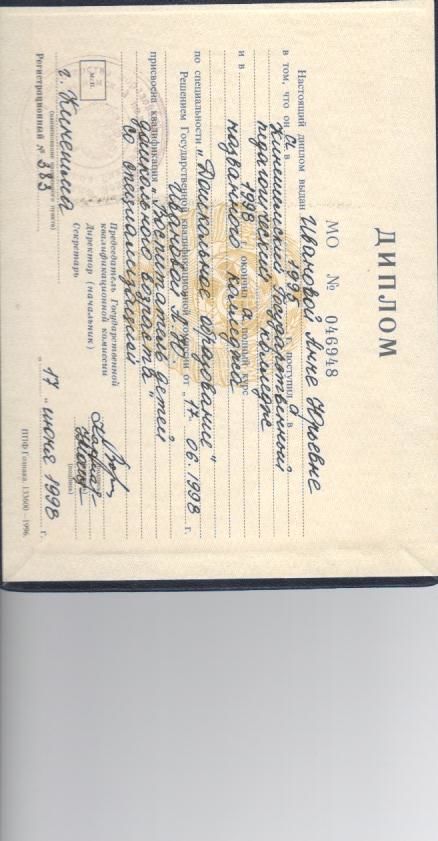 ДИПЛОМ
МО № 046948
Настоящий диплом выдан Ивановой Анне Юрьевне
в том, что он а в г. поступил а в
Кинешемский государственный
педагогический колледж
и в 1998 г. окончил а полный курс
названного колледжа
по специальности „Дошкольное образование"
Решением Государственной квалификационной комиссии от „17" 06. 1998 г.
Ивановой А. Ю.
присвоена квалификация „Воспитатель детей
дошкольного возраста"
со специализацией
Председатель Государственной
квалификационной комиссии
Директор (начальник)
Секретарь
(подпись)
М.П.
г. Кинешма
„ 17 " июня 1998 г.
Регистрационный № 383
ПТФ Гознака. 133600 - 1996.